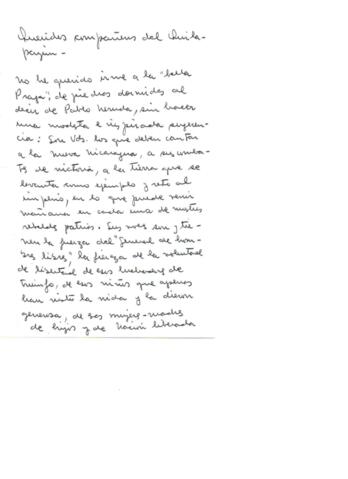 Queridos compañeros del Quila-
payún -
No he querido irme a la "bella
Praga", de piedras dormidas al
decir de Pablo Neruda, sin hacer
una modesta e inspirada sugeren-
cia: Son Uds. los que deben cantar
a la nueva Nicaragua, a su comba-
te de victoria, a la tierra que se
levanta como ejemplo y reto al
imperio, en lo que puede venir
mañana en cada una de nuestras
rebeldes patrias. Sus voces son y tie-
nen la fuerza del "General de hom-
bres libres", la fuerza de la voluntad
de libertad de esos luchadores de
triunfo, de esos niños que apenas
han visto la vida y la dieron
generosa, de esas mujeres-madres
de hijos y de nación liberada